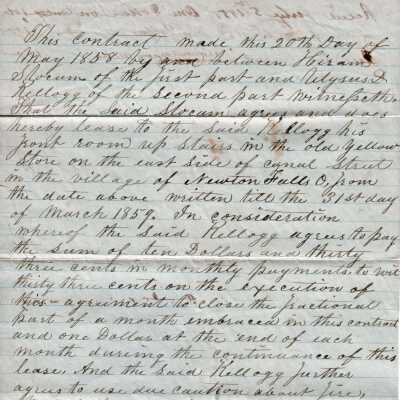 This contract made this 20th Day of
May 1858 by and between Hiram
Slocum of the first part and Ulysus I
Kellogg of the second part witnesseth.
That the said Slocum agrees and does
hereby lease to the said Kellogg his
front room up stairs in the old Yellow
Store on the east side of canal Street
in the village of Newton Falls O, from
the date above written till the 31st day
of March 1859. In consideration
whereof the said Kellogg agrees to pay
the sum of ten Dollars and thirty
three cents in monthly payments to wit
thirty three cents on the execution of
this agreiment to close the fractional
part of a month embraced in this contract
and one Dollar at the end of each
month dureing the continuance of this
lease, And the said Kellogg further
agrees to use due caution about fire,